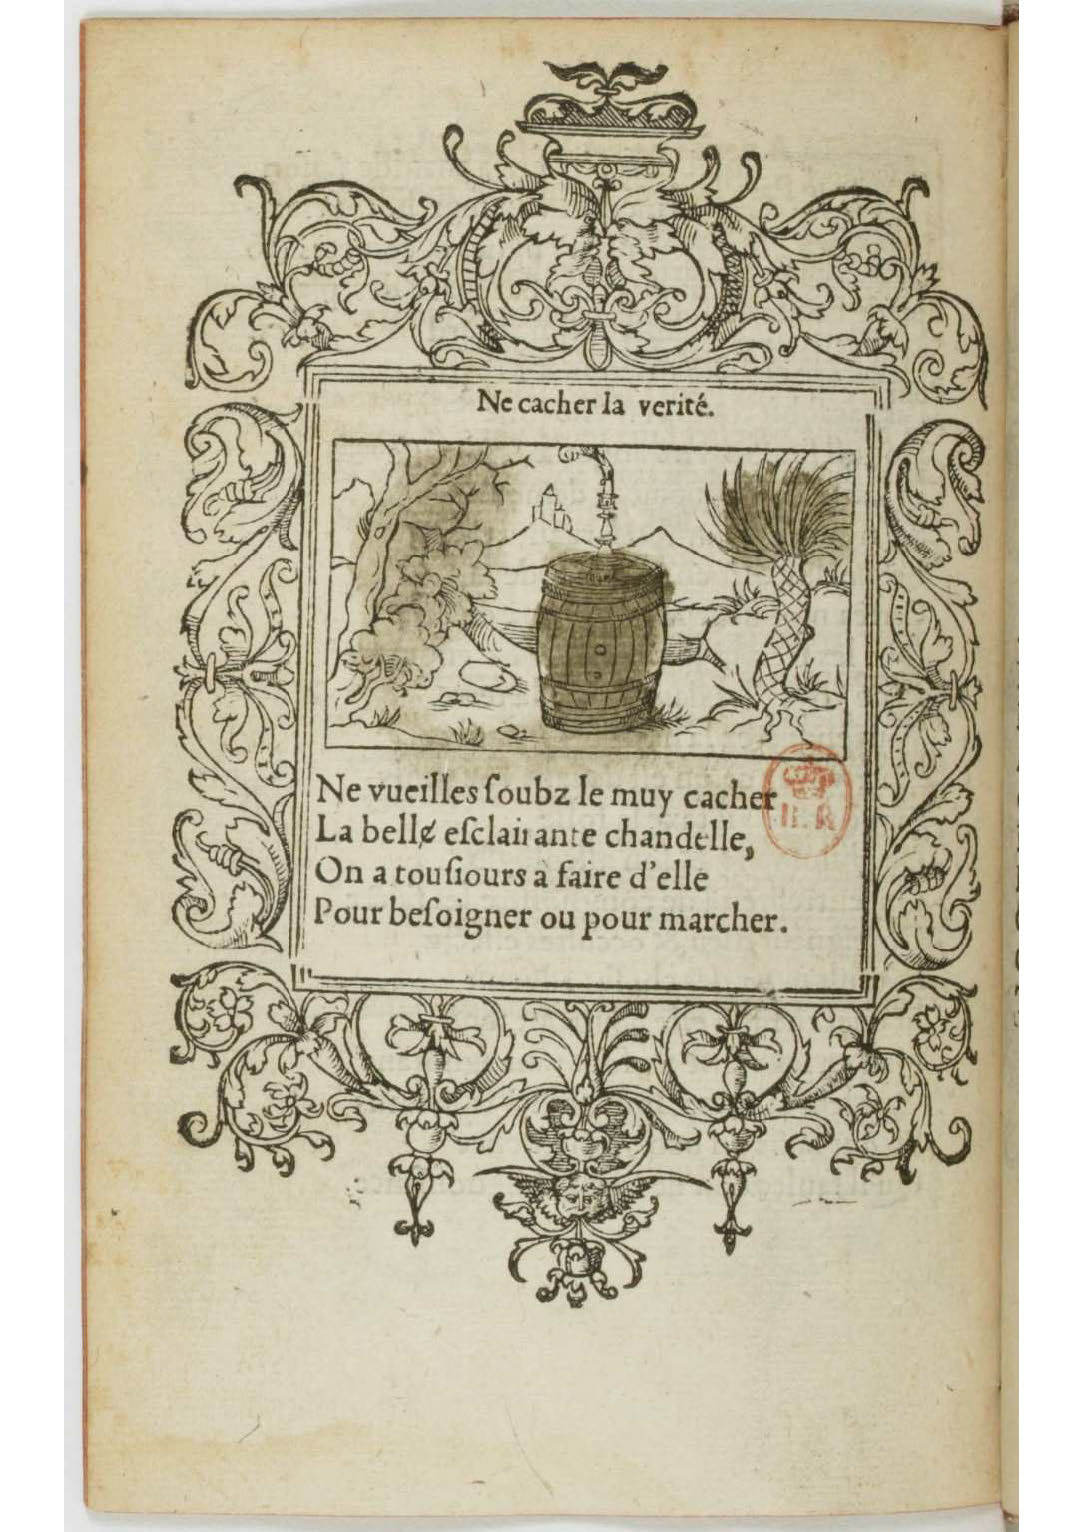 Ne cacher la verité.
Ne vueilles ſoubz le muy cacher
La bellȩ eſclairante chandelle,
On a touſiours à faire d'elle
Pour beſoigner ou pour marcher.